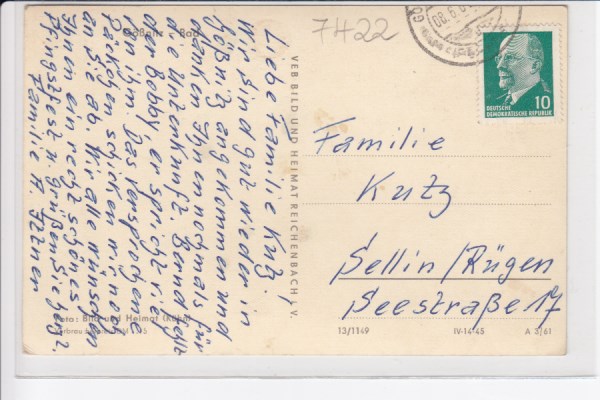 Gößnitz - Bad
Liebe Familie Kutz,
Wir sind gut wieder in
Gößnitz angekommen und
danken Ihnen nochmals für
die Unterkunft. Bernd fehlt
der Bobby, er spricht viel
von ihm. Das versprochene
Päckchen schicken wir noch
an Sie ab. Wir alle wünschen
Ihnen ein recht schönes
Pfingstfest u. grüßen Sie herzl.
Familie
Foto: Bild und Heimat
VEB BILD UND HEIMAT REICHENBACH i. V.
7422
08.6.
DEUTSCHE
DEMOKRATISCHE REPUBLIK
10
Familie
Kutz
Sellin/Rügen
Seestraße 17
13/1149
IV-14-45
A 3/61